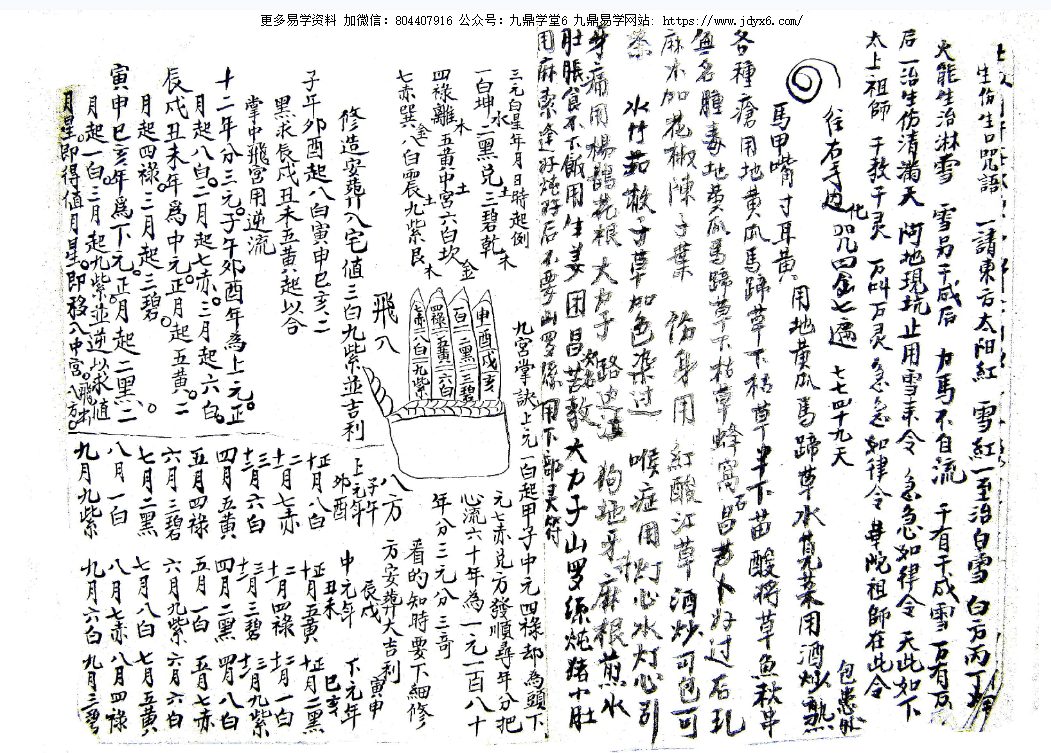 更多易学资料 加微信：804407916 公众号：九鼎学堂6 九鼎易学网站: https://www.jdyx6.com/
生伤生口咒語 一請東方太阳紅 雪紅一至治白雪 白方丙丁
火能生治淋雪 雪另干成后 力馬不自流 千有千成雪 万有万
后一治生伤清満天 阿地現坑止用雪来令 急急如律令 天此如下
太上祖師 千教千灵 万叫万灵 急急如律令 華陀祖師在此令
往右手边化 咒四金七遍 七七四十九天
馬甲嘴寸耳黄 用地黄瓜馬蹄草水莧菜用酒炒熱 包患处
各種瘡用地黄瓜馬蹄草下枯草半下苗酸將草魚秋串
無名腫毒地黄瓜馬蹄草下枯草蜂窩石昌蒲卜好过石乳
麻木加花椒陳子葉 伤身用紅酸江草酒炒可包可
水竹茹 喉症用灯心水灯心引
牙痛用楊鵲花根大力子 路边 狗地牙麻根煎水
肚脹食不下飯用生姜田昌苦教大力子山罗絲炖猪小肚
用麻索逢好炖好后不要山罗絲用下部灵符
九宮掌訣上元一白起甲子中元四禄却為頭下
元七赤兑方發順尋年分把
心流六十年為一元一百八十
年分三元分三奇
看的知時要下細修
方安葬大吉利
飛入
八方
申酉戌亥
一白二黑三碧
四禄五黄六白
七赤八白九紫
三元白星年月日時起例
一白坤水二黑兑土三碧乾木
四禄離木五黄中宮土六白坎金
七赤巽金八白震土九紫艮木
修造安葬八宅值三白九紫並吉利
子年夘酉起八白寅申巳亥二
黑求辰戌丑未五黄起以合
掌中飛宮用逆流
十二年分三元。子午夘酉年為上元。正
月起八白。二月起七赤。三月起六白。
辰戌丑未年為中元。正月起五黄。二
月起四禄。三月起三碧。
寅申巳亥年為下元。正月起二黑。二
月起一白。三月起九紫並逆以求值
月星。即得值月星。即移入中宮。飛出八方。
上元年 子午夘酉
正月八白
二月七赤
三月六白
四月五黄
五月四禄
六月三碧
七月二黑
八月一白
九月九紫
中元年 辰戌丑未
正月五黄
二月四禄
三月三碧
四月二黑
五月一白
六月九紫
七月八白
八月七赤
九月六白
下元年 寅申巳亥
正月二黑
二月一白
三月九紫
四月八白
五月七赤
六月六白
七月五黄
八月四禄
九月三碧